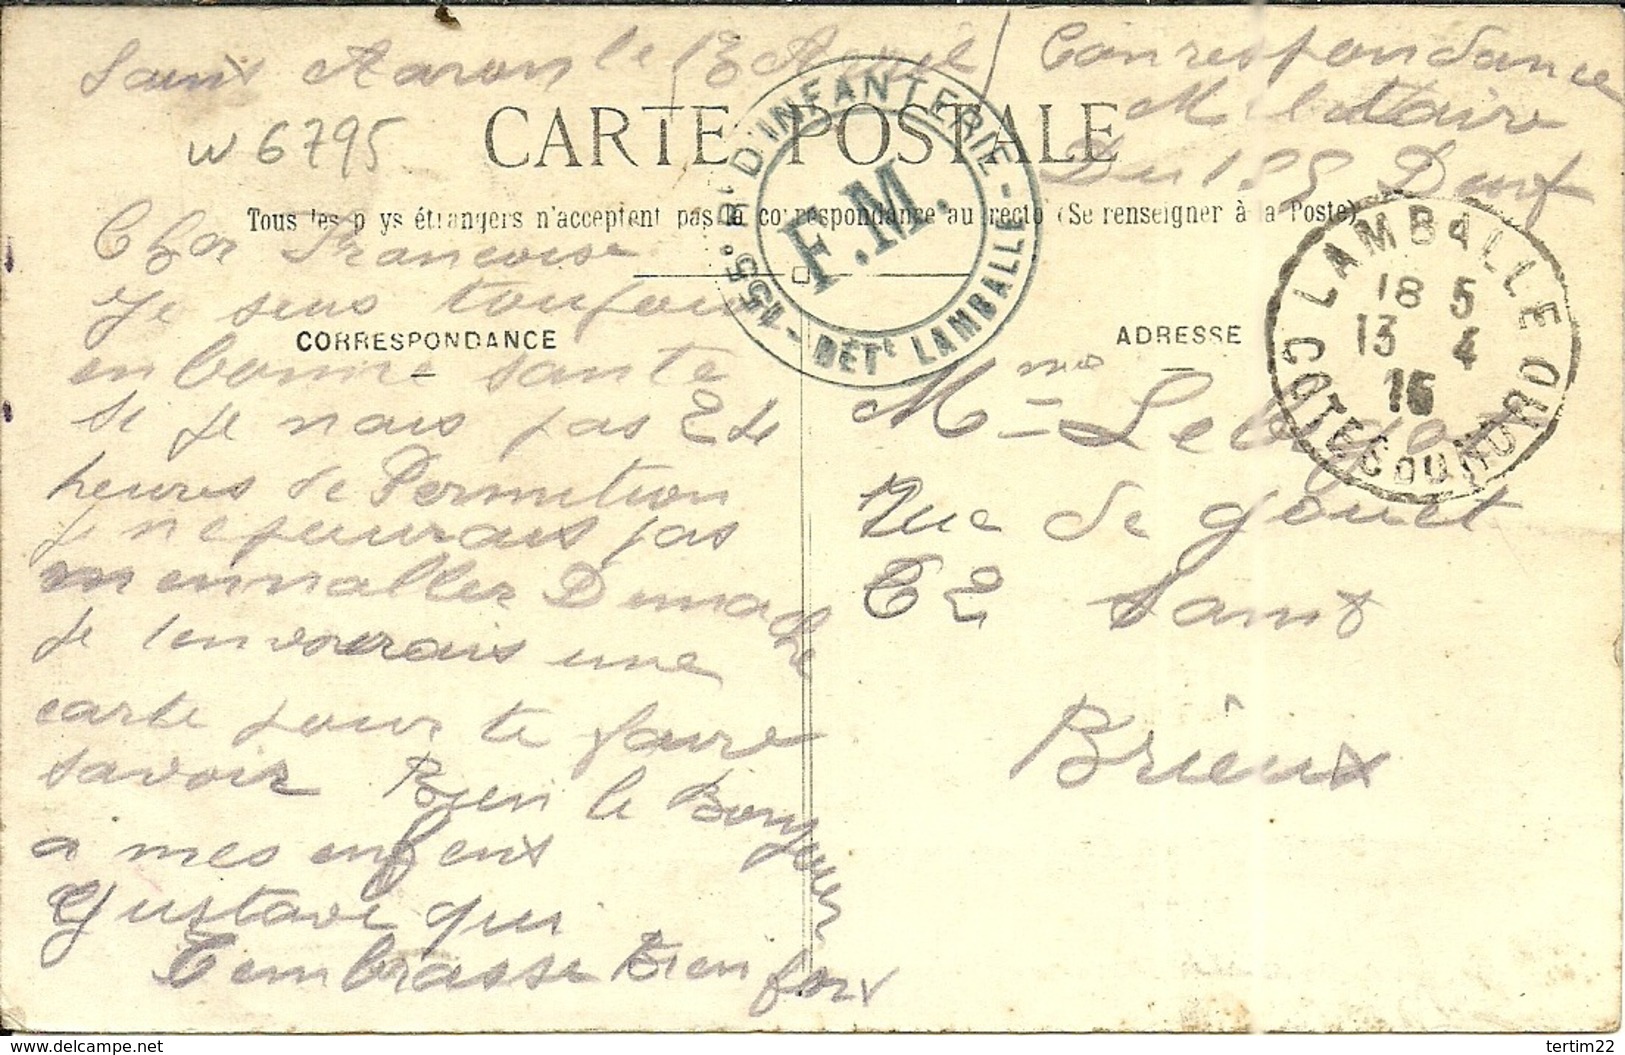 Saint Aaron le 13 Avril
Correspondance
Militaire
Du 155 D'inf
w 6795
CARTE POSTALE
Tous les pays étrangers n'acceptent pas la correspondance au recto (Se renseigner à la Poste)
155e Rt D'INFANTERIE - DÉTt LAMBALLE -
F.M.
LAMBALLE
18 5
13 4
15
COTES DU NORD
CORRESPONDANCE
ADRESSE
Cher Francoise
Je suis toujour
en bonne sante
Si je nais pas 24
heures de Permition
je ne pourais pas
mennaller Dimache
Je tenvoierais une
carte pour te faire
savoir Bien le Bonjour
a mes enfent
Gustave qui
Tembrasse Bien fort
Mme
Rue de gouet
62 Saint
Brieux
delcampe.net
tertim22